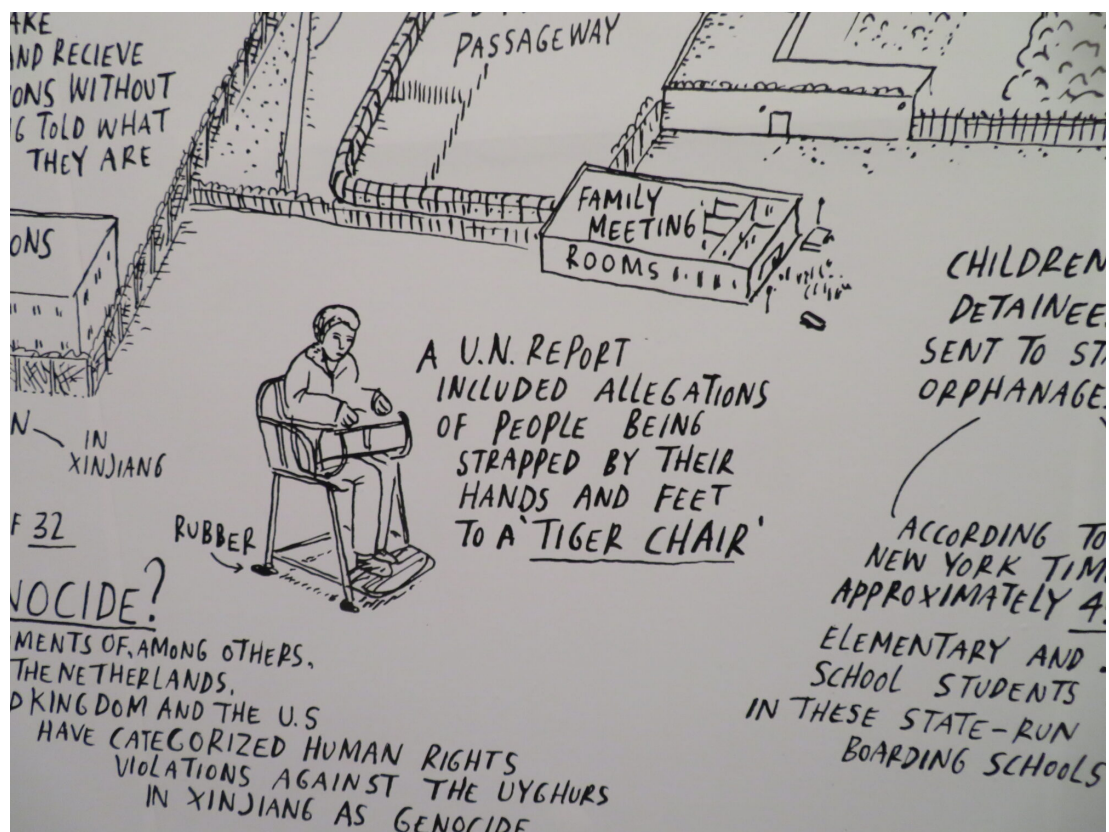 AKE
AND RECIEVE
ONS WITHOUT
G TOLD WHAT
THEY ARE
PASSAGEWAY
FAMILY
MEETING
ROOMS
ONS
IN
XINJIANG
F 32
RUBBER
A U.N. REPORT
INCLUDED ALLEGATIONS
OF PEOPLE BEING
STRAPPED BY THEIR
HANDS AND FEET
TO A 'TIGER CHAIR'
CHILDREN
DETAINEE
SENT TO STA
ORPHANAGE
ACCORDING TO
NEW YORK TIM
APPROXIMATELY 4
ELEMENTARY AND
SCHOOL STUDENTS
IN THESE STATE-RUN
BOARDING SCHOOLS
NOCIDE?
MENTS OF, AMONG OTHERS,
THE NETHERLANDS,
D KINGDOM AND THE U.S
HAVE CATEGORIZED HUMAN RIGHTS
VIOLATIONS AGAINST THE UYGHURS
IN XINJIANG AS GENOCIDE